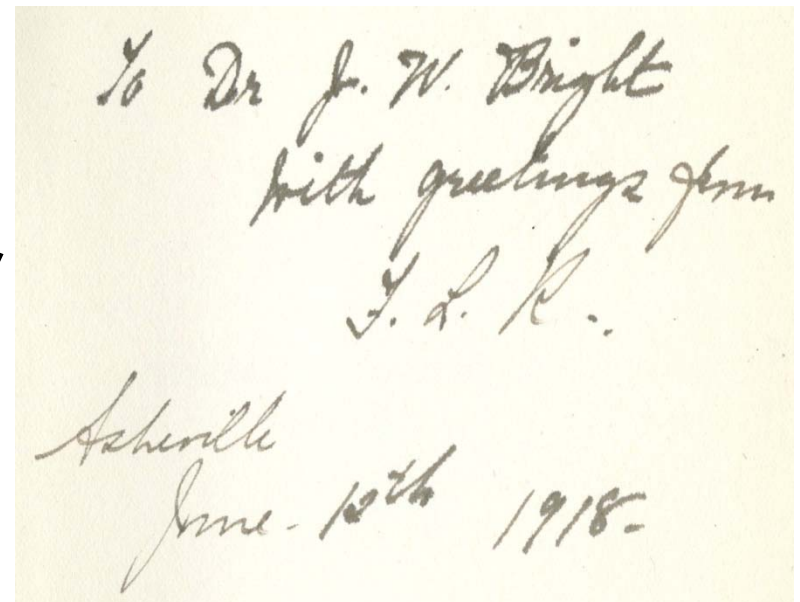 To Dr J. W. Bright
with greetings from
F. L. R.
Asheville
June 12th 1918